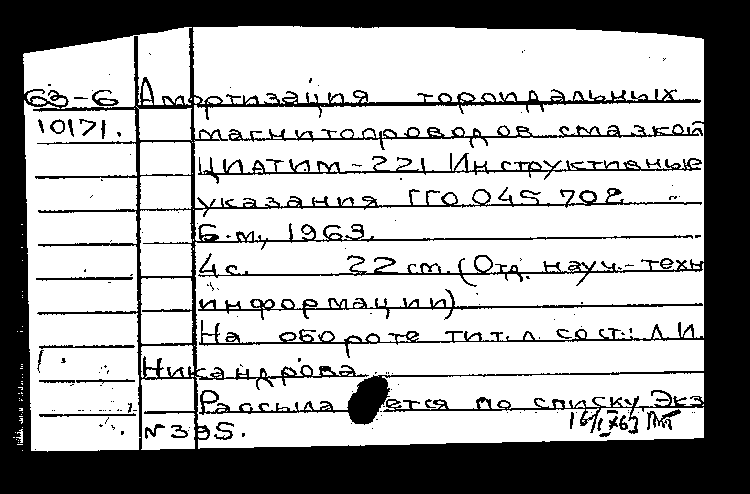 63-6 Амортизация тороидальных
10171. магнитопроводов смазкой
ЦИАТИМ-221 Инструктивные
указания ГГО.045.702
Б.м., 1963.
4с. 22 см. (Отд. науч.-техн
информации)
На обороте тит. л. сост.: Л.И.
Никандрова
Рассылается по списку. Экз
№395.